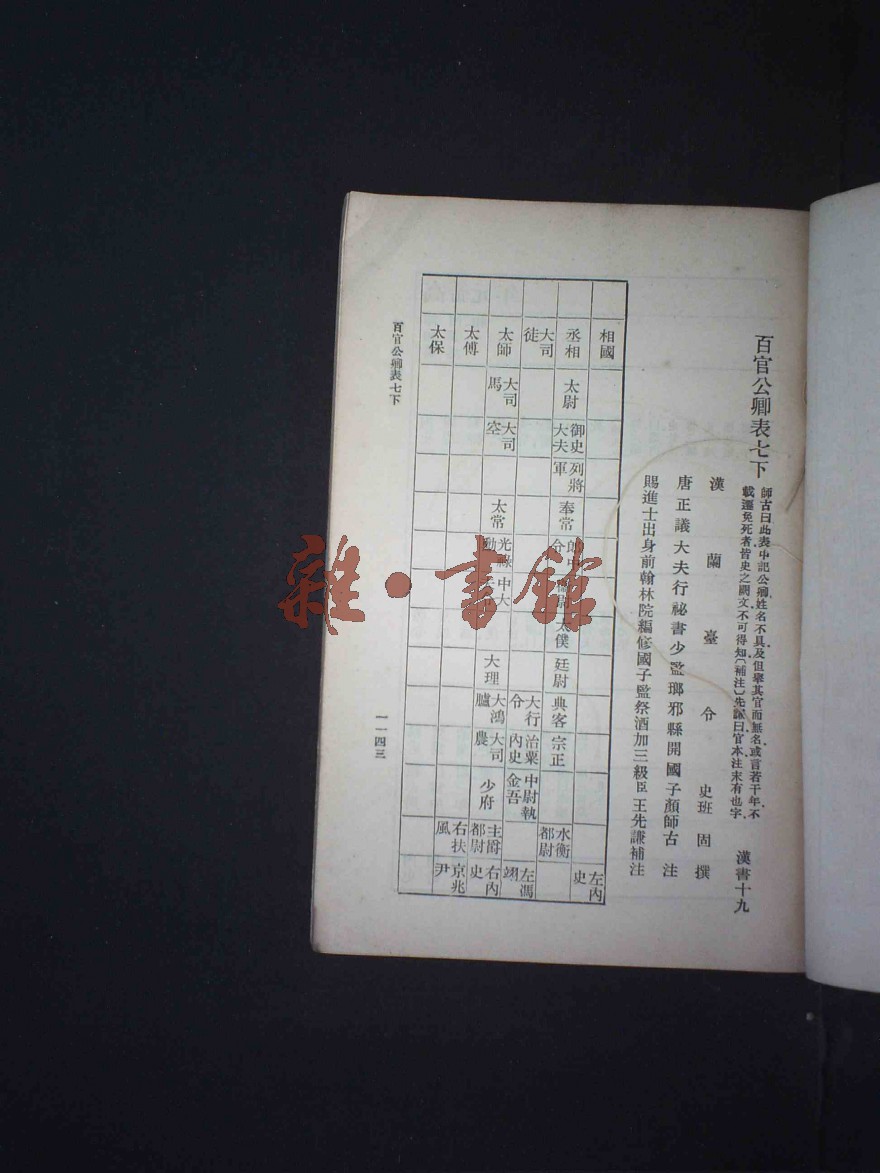 百官公卿表七下
師古曰此表中記公卿姓名不具及但舉其官而無名或言若干年不
載遷免死者皆史之闕文不可得知〔補注〕先謙曰官本注末有也字
漢書十九
漢蘭臺令史班固撰
唐正議大夫行祕書少監瑯邪縣開國子顏師古注
賜進士出身前翰林院編修國子監祭酒加三級臣王先謙補注
相國
左內史
丞相
太尉
御史大夫
列將軍
奉常
太僕
廷尉
典客
宗正
水衡都尉
大司徒
大行令
治粟內史
中尉執金吾
左馮翊
太師
大司馬
大司空
太常
大理
大鴻臚
大司農
少府
主爵都尉
右內史
太傅
右扶風
京兆尹
太保
百官公卿表七下
一一四三
雜·書館